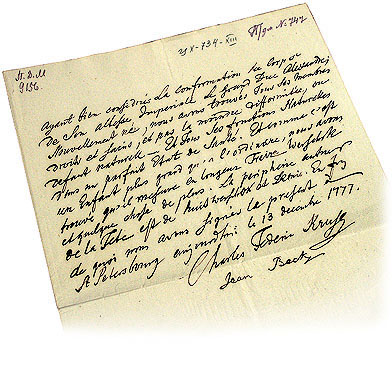 П. Д. М
9156
21 X - 734 - XIII
No 747
Ayant bien considerés la conformation du corps
de Son altesse Imperiale le Grand Duc Alexandre
Nouvellement née, nous avons trouvés Tous les Membres
droits et sains, et pas la moindre difformité, ou
defaut naturelle — Et tous ses fonctions Naturelles
dans un parfait Etat de Santé. Et comme c'est
un Enfant plus grand qu'a l'ordinaire, nous avons
trouvé qu'il mesure en longueur Treize Werschok
et quelque chose de plus. La peripherie autour
de la Tete est de huit werschok et Demie. En foy
de quoi nous avons signés le present
A Petersbourg aujourdhui le 13 decembre 1777.
Charles Federic Kruse
Jean Beck